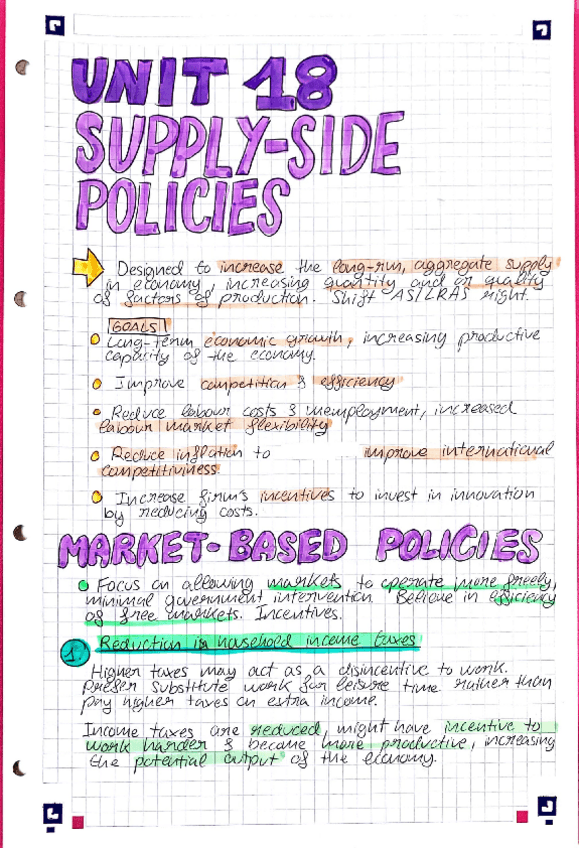 UNIT 18
SUPPLY-SIDE
POLICIES
Designed to increase the long-run, aggregate supply
in economy, increasing quantity and or quality
of factors of production. Shift AS/LRAS right.
GOALS
Long-term economic growth, increasing productive
capacity of the economy.
Improve competition & efficiency
Reduce labour costs & unemployment, increased
labour market flexibility
Reduce inflation to improve international
competitiviness.
Increase firm's incentives to invest in innovation
by reducing costs.
MARKET-BASED POLICIES
Focus on allowing markets to operate more freely,
minimal government intervention. Believe in efficiency
of free markets. Incentives.
1 Reduction in household income taxes
Higher taxes may act as a disincentive to work.
Prefer substitute work for leisure time rather than
pay higher taxes on extra income.
Income taxes are reduced, might have incentive to
work harder & became more productive, increasing
the potential output of the economy.